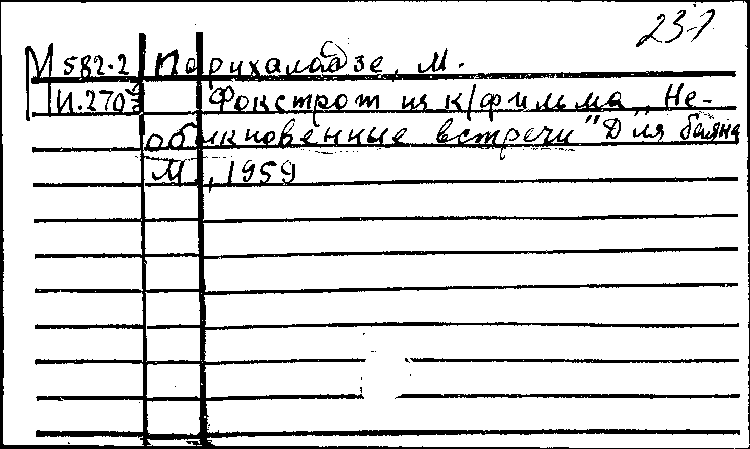 23-1
М 582.2 Парихаладзе, М.
И.270 Фокстрот из к/фильма „Не-
обыкновенные встречи" Для баяна
М., 1959